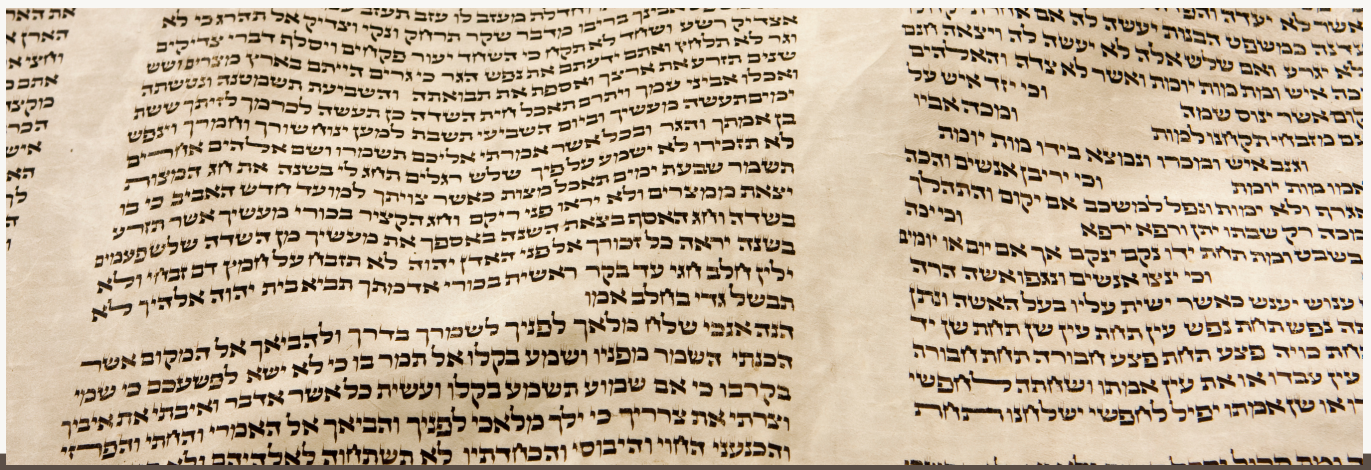 אשר לא יעדה והפדה
כמשפט הבנות יעשה לה אם אחרת
לא יגרע ואם שלש אלה לא יעשה לה ויצאה חנם
איש ומת מות יומת ואשר לא צדה והאלהים
אשר ינוס שמה וכי יזד איש על
מזבחי תקחנו למות ומכה אביו
וגנב איש ומכרו ונמצא בידו מות יומת
מות יומת וכי יריבן אנשים והכה
ולא ימות ונפל למשכב אם יקום והתהלך
רק שבתו יתן ורפא ירפא וכי יכה
בשבט ומת תחת ידו נקם ינקם אך אם יום או יומים
וכי ינצו אנשים ונגפו אשה הרה
ענוש יענש כאשר ישית עליו בעל האשה ונתן
נפש תחת נפש עין תחת עין שן תחת שן יד
כויה פצע תחת פצע חבורה תחת חבורה
עין עבדו או את עין אמתו ושחתה לחפשי
או שן אמתו יפיל לחפשי ישלחנו תחת
וחדלת מעזב לו עזב תעזב
אבינך בריבו מדבר שקר תרחק ונקי וצדיק אל תהרג כי לא
אצדיק רשע ושחד לא תקח כי השחד יעור פקחים ויסלף דברי צדיקים
וגר לא תלחץ ואתם ידעתם את נפש הגר כי גרים הייתם בארץ מצרים ושש
שנים תזרע את ארצך ואספת את תבואתה והשביעת תשמטנה ונטשתה
ואכלו אביני עמך ויתרם תאכל חית השדה כן תעשה לכרמך לזיתך ששת
ימים תעשה מעשיך וביום השביעי תשבת למען ינוח שורך וחמרך וינפש
בן אמתך והגר ובכל אשר אמרתי אליכם תשמרו ושם אלהים אחרים
לא תזכירו לא ישמע על פיך שלש רגלים תחג לי בשנה את חג המצות
תשמר שבעת ימים תאכל מצות כאשר צויתך למועד חדש האביב כי בו
יצאת ממצרים ולא יראו פני ריקם וחג הקציר בכורי מעשיך אשר תזרע
בשדה וחג האסף בצאת השנה באספך את מעשיך מן השדה שלש פעמים
בשנה יראה כל זכורך אל פני האדן יהוה לא תזבח על חמץ דם זבחי ולא
ילין חלב חגי עד בקר ראשית בכורי אדמתך תביא בית יהוה אלהיך לא
תבשל גדי בחלב אמו
הנה אנכי שלח מלאך לפניך לשמרך בדרך ולהביאך אל המקום אשר
הכנתי השמר מפניו ושמע בקלו אל תמר בו כי לא ישא לפשעכם כי שמי
בקרבו כי אם שמוע תשמע בקלו ועשית כל אשר אדבר ואיבתי את איביך
וצרתי את צרריך כי ילך מלאכי לפניך והביאך אל האמרי והחתי והפרזי
והכנעני החוי והיבוסי והכחדתיו לא תשתחוה לאלהיהם ולא
את הארץ
הארץ
וחצי
אתם
הכר
איש